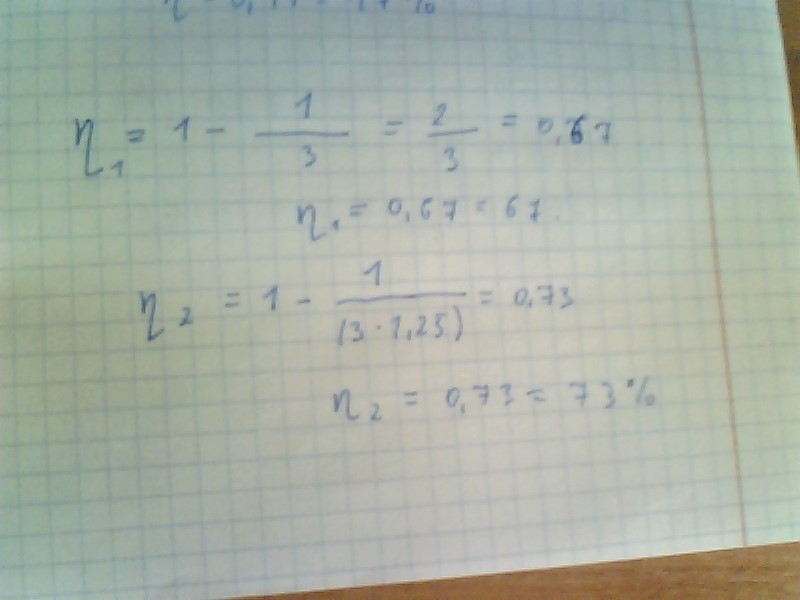 η₁ = 1 - 1/3 = 2/3 = 0,67
η₁ = 0,67 = 67
η₂ = 1 - 1/(3·1,25) = 0,73
η₂ = 0,73 = 73%